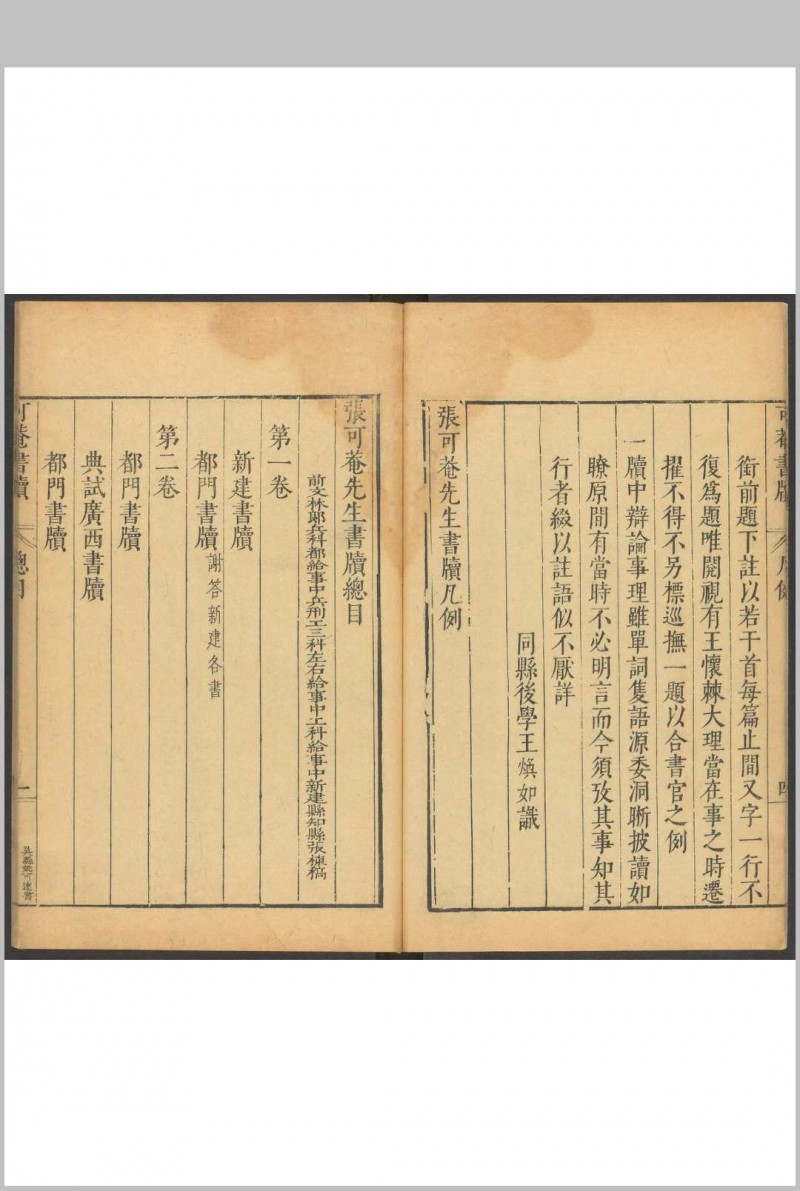 銜前題下註以若干首每篇止間又字一行不
復爲題唯開視有王懷棘大理當在事之時遷
擢不得不另標巡撫一題以合書官之例
一牘中辯論事理雖單詞隻語源委洞晰披讀如
瞭原間有當時不必明言而今須攷其事知其
行者綴以註語似不厭詳
同縣後學王煥如識
張可菴先生書牘凡例
張可菴先生書牘總目
前文林郎兵科都給事中兵刑工三科左右給事中工科給事中新建縣知縣張棟稿
第一卷
新建書牘
都門書牘謝答新建各書
第二卷
都門書牘
典試廣西書牘
都門書牘
可菴書牘 總目 一